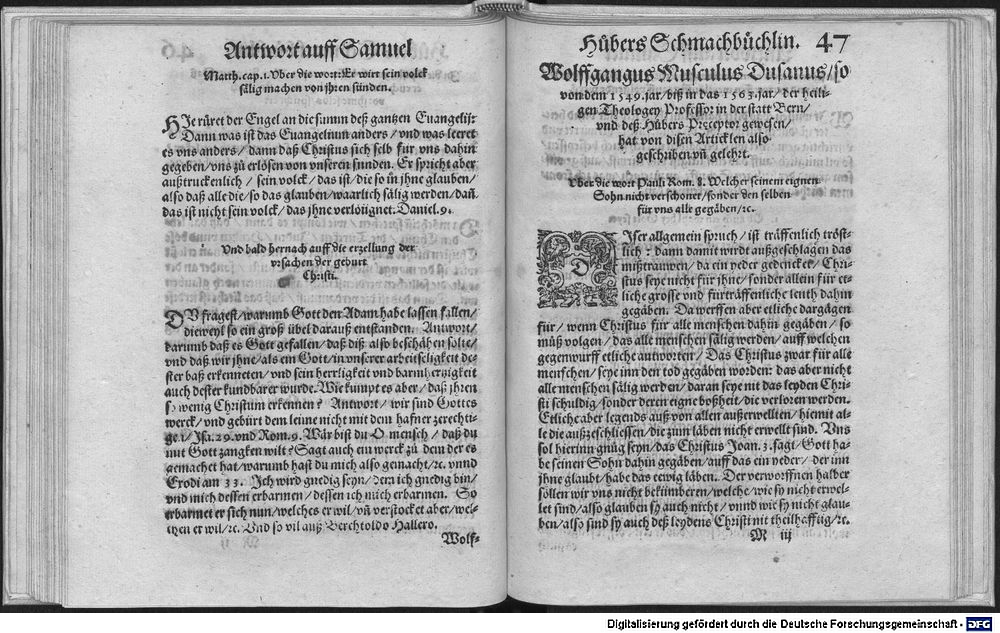 Antwort auff Samuel
Matth. cap. 1. Vber die wort: Er wirt sein volck
sälig machen von jhren sünden.
HIe rüret der Engel an die summ deß gantzen Euangelij:
Dann was ist das Euangelium anders / vnd was leeret
es vns anders / dann daß Christus sich selb für vns dahin
gegeben / vns zů erlösen von vnseren sünden. Er spricht aber
außtruckenlich / sein volck / das ist / die so in jhne glauben /
also daß alle die / so das glauben / waarlich sälig werden / dañ
das ist nicht sein volck / das jhne verlöügnet. Daniel. 9.
Vnd bald hernach auff die erzellung der
vrsachen der geburt
Christi.
DV fragest / warumb Gott den Adam habe lassen fallen /
dieweyl so ein groß übel darauß entstanden. Antwort /
darumb daß es Gott gefallen / daß diß also beschähen solte /
vnd daß wir jhne / als ein Gott / in vnserer arbeitseligkeit de-
ster baß erkenneten / vnd sein herrligkeit vnd barmhertzigkeit
auch dester kundbarer wurde. Wie kumpt es aber / daß jhren
so wenig Christum erkennen? Antwort / wir sind Gottes
werck / vnd gebürt dem leime nicht mit dem hafner zerechti-
gen / Jsa. 29. vnd Rom. 9. Wär bist du O mensch / daß du
mit Gott zangken wilt? Sagt auch ein werck zů dem der es
gemachet hat / warumb hast du mich also gemacht / ꝛc. vnnd
Exodi am 33. Jch wird gnedig seyn / dem ich gnedig bin /
vnd mich dessen erbarmen / dessen ich mich erbarmen. So
erbarmet er sich nun / welches er wil / vñ verstocket aber / wel-
chen er wil / ꝛc. Vnd so vil auß Berchtoldo Hallero.
Wolf-
Hůbers Schmachbüchlin. 47
Wolffgangus Musculus Dusanus / so
von dem 1549. jar / biß in das 1563. jar / der heili-
gen Theologey Professor in der statt Bern /
vnd deß Hůbers Preceptor gewesen /
hat von disen Articklen also
geschriben vñ gelehrt.
Vber die wort Pauli Rom. 8. Welcher seinem eignen
Sohn nicht verschonet / sonder den selben
für vns alle gegäben / ꝛc.
DJser allgemein spruch / ist träffenlich tröst-
lich: dann damit wirdt außgeschlagen das
mißtrauwen / da ein yeder gedencket / Chri-
stus seye nicht für jhne / sonder allein für et-
liche grosse vnd fürträffenliche leuth dahin
gegäben. Da werffen aber etliche dargägen
für / wenn Christus für alle menschen dahin gegäben / so
můß volgen / das alle menschen sälig werden / auff welchen
gegenwurff etliche antworten / Das Christus zwar für alle
menschen / seye inn den tod gegäben worden: das aber nicht
alle menschen sälig werden / daran seye nit das leyden Chri-
sti schuldig / sonder deren eigne boßheit / die verloren werden.
Etliche aber legends auß von allen außerwellten / hiemit al-
le die außzeschliessen / die zum läben nicht erwellt sind. Vns
sol hierinn gnůg seyn / das Christus Joan. 3. sagt / Gott ha-
be seinen Sohn dahin gegäben / auff das ein yeder / der inn
jhne glaubt / habe das ewig läben. Der verworffnen halber
söllen wir vns nicht bekümberen / welche / wie sy nicht erwel-
let sind / also glauben sy auch nicht / vnnd wie sy nicht glau-
ben / also sind sy auch deß leydens Christi nit theilhafftig / ꝛc.
M iij
Digitalisierung gefördert durch die Deutsche Forschungsgemeinschaft - DFG